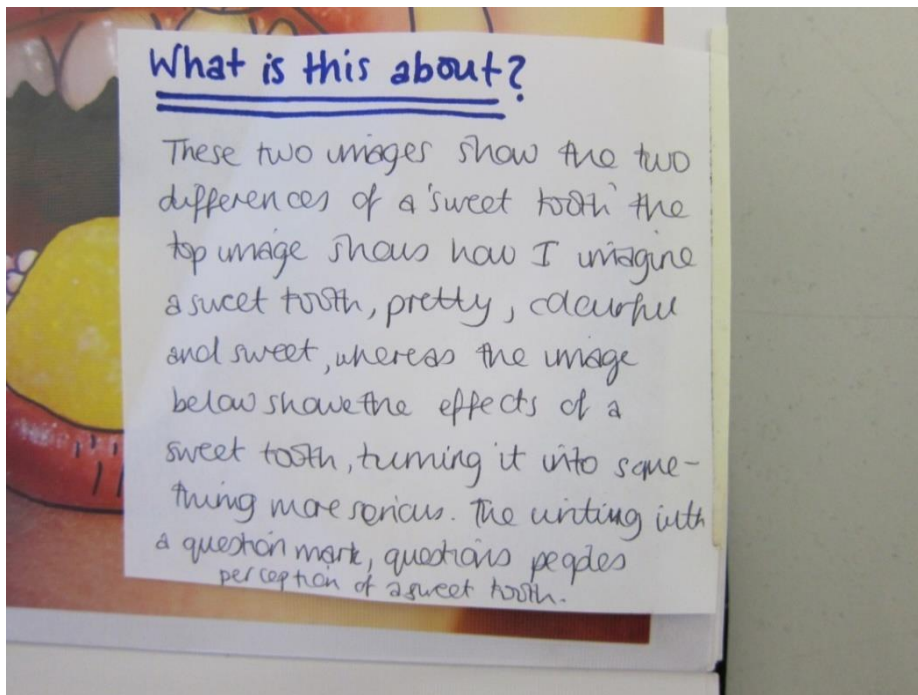 What is this about?
These two images show the two
differences of a 'sweet tooth' the
top image shows how I imagine
a sweet tooth, pretty, colourful
and sweet, whereas the image
below shows the effects of a
sweet tooth, turning it into some-
thing more serious. The writing with
a question mark, questions peoples
perception of a sweet tooth.